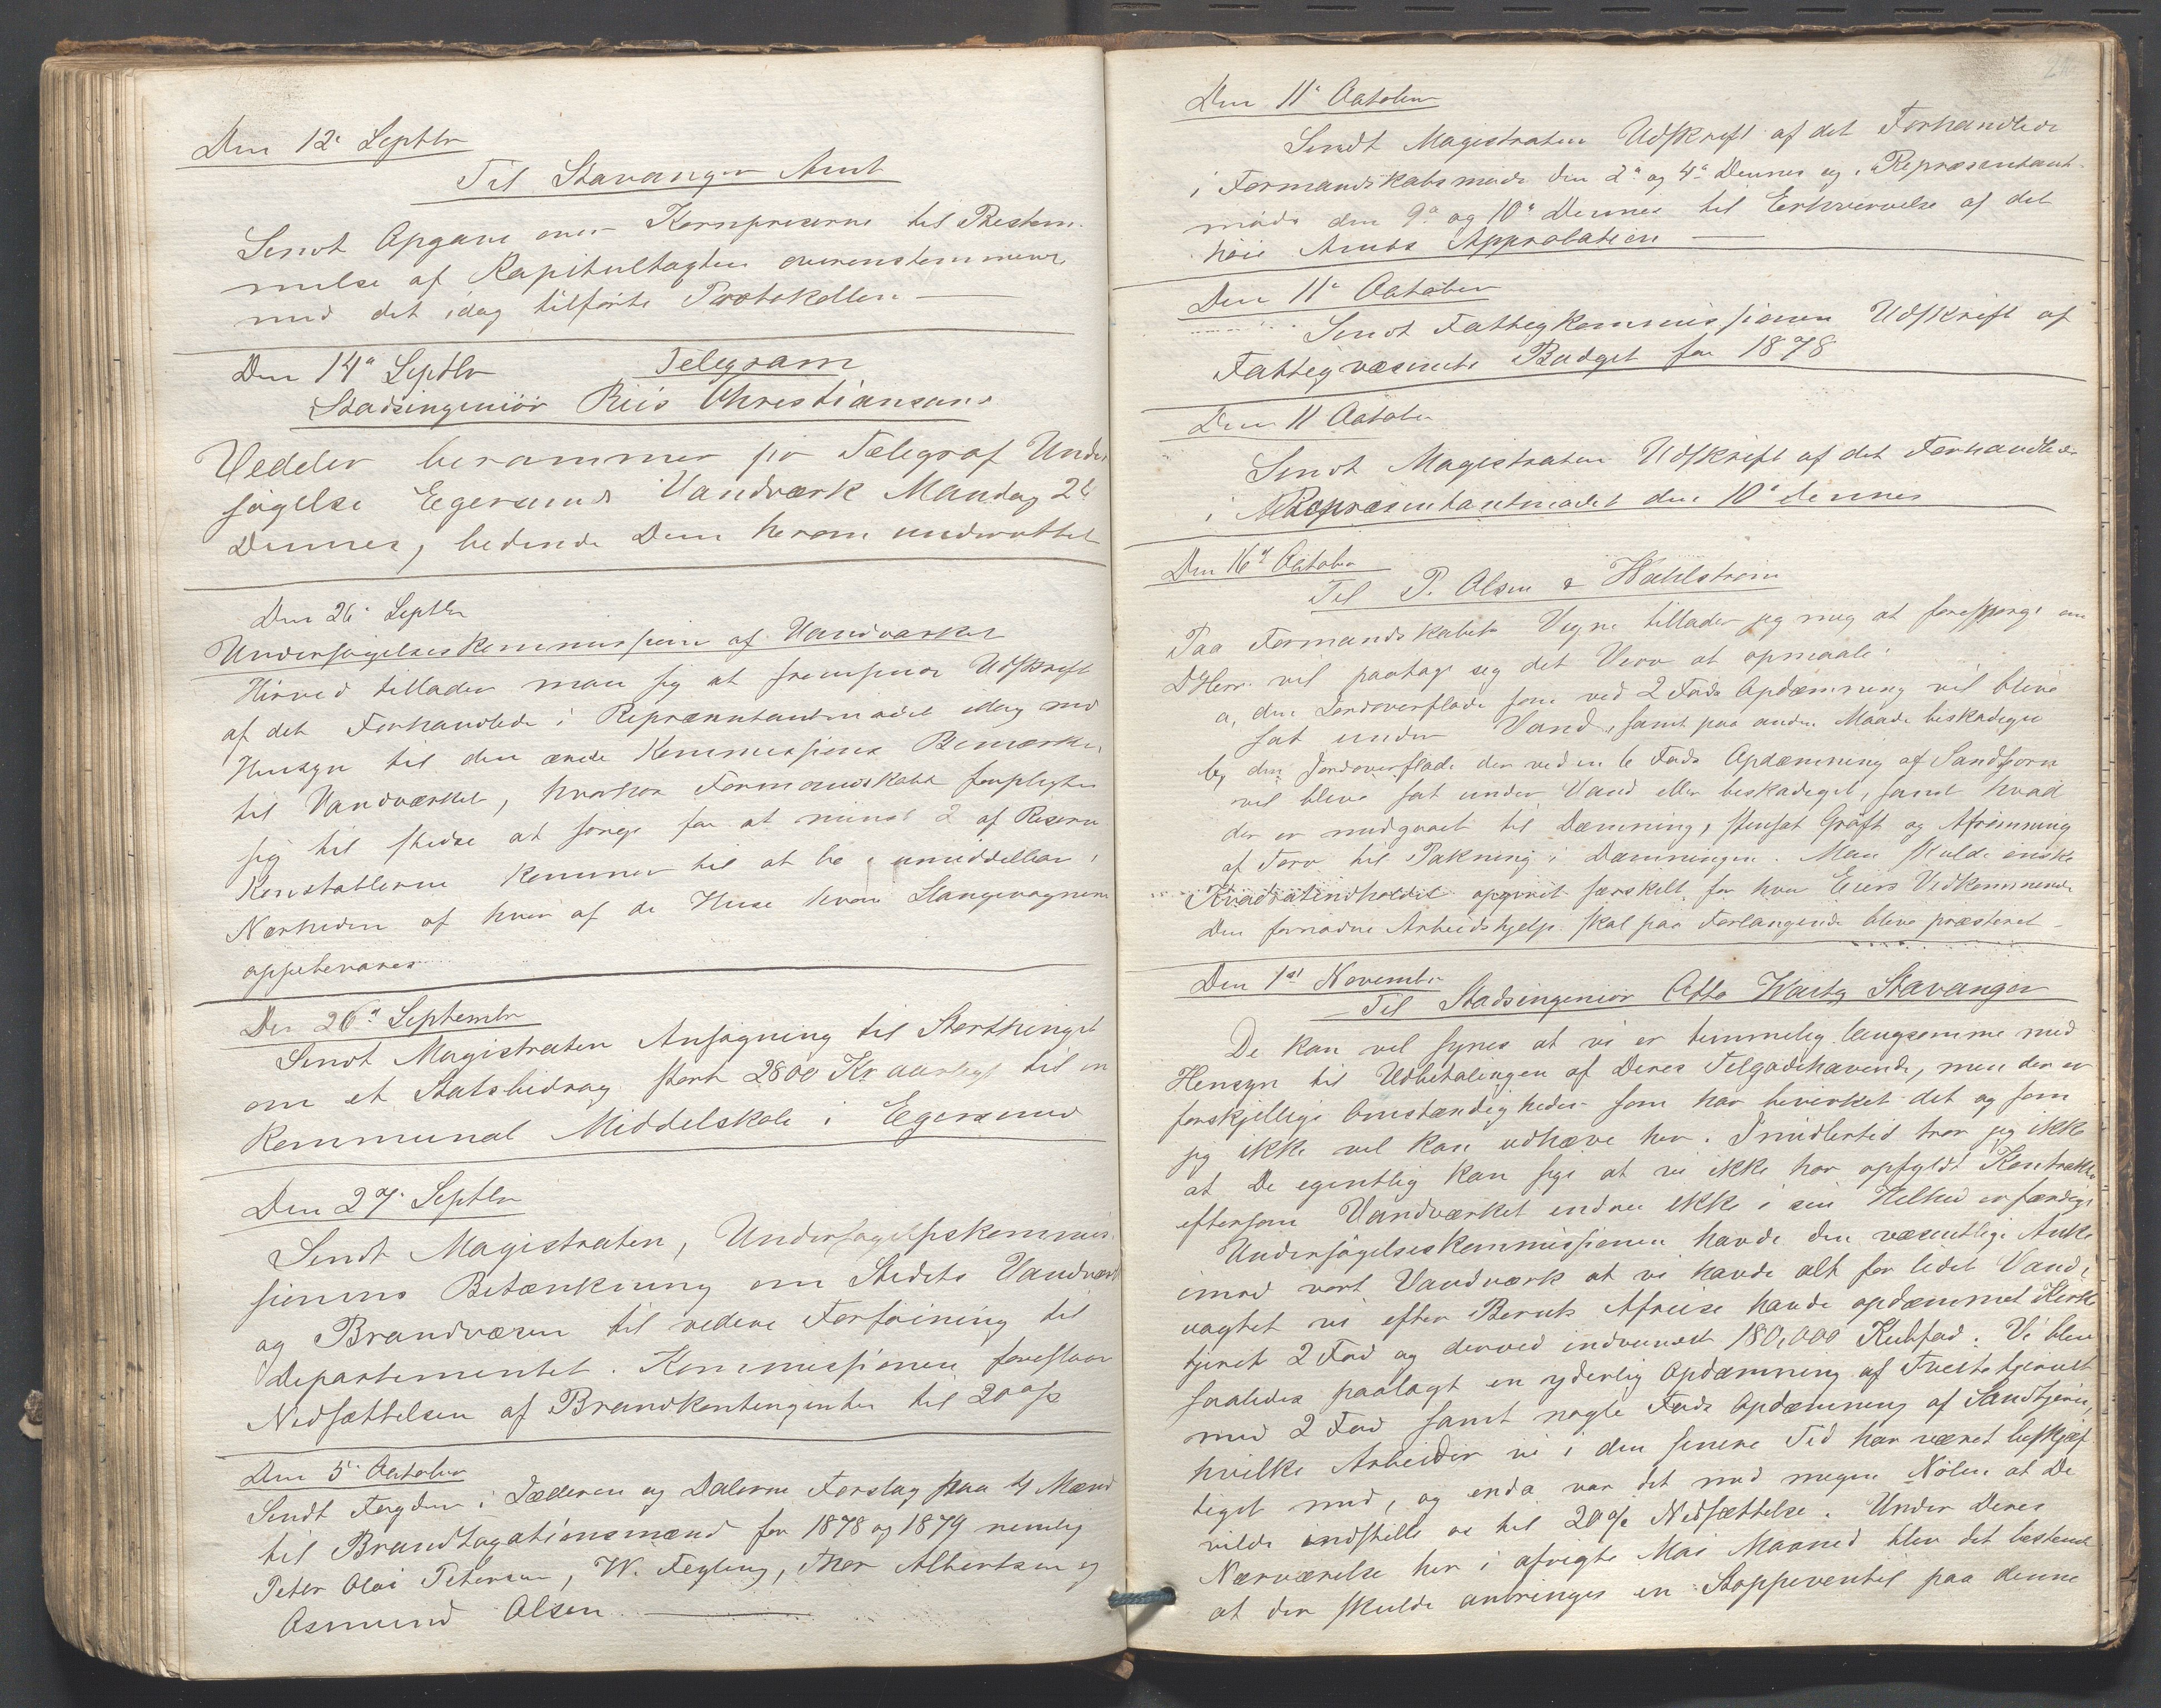 Den 12te Septbr
Til Stavanger Amt
Sendt Opgave over Kornpriserne til Bestem-
melse af Kapitultagten overenstemmende
med det idag tilførte Protokollen —
Den 14de Septbr Telegram
Stadsingeniør Riis Christianssand
Vedelev berammer pr Telegraf Under
søgelse Egersunds Vandværk Mandag 24
Dennes, bedende Dem herom underrettet
Den 26de Septbr
Undersøgelseskommissionen af Vandværket
Hirved tillader man sig at fremsende Udskrift
af det Forhandlede i Repræsentantmødet idag med
Hensyn til den ærede Kommissions Bemærkn.
til Vandværket, hvorhos Formandskabet forpligter
sig til stedse at sørge for at mindst 2 af Reserve
Konstablerne kommer til at bo i umiddelbar
Nærheden af hver af de Huse hvori Slangevognene
oppebevares
Den 26de September
Sendt Magistraten Ansøgning til Storthinget
om et Statsbidrag stort 2800 Kr aarligt til en
Kommunal Middelskole i Egersund
Den 27de Septbr
Sendt Magistraten, Undersøgelseskommis-
sionens Betænkning om Stedets Vandværk
og Brandvæsen til videre Forføining til
Departementet. Kommissionen foreslaar
Nedsættelsen af Brandkontingenten til 20 %
Den 5te Oktober
Sendt Fogden i Jæderen og Dalerne Forslag paa 4 Mænd
til Brandtagationsmænd for 1878 og 1879 nemlig
Peter Olai Petersen, W. Feyling, Thor Albertsen og
Osmund Olsen. —
Den 11te Oktober
Sendt Magistraten Udskrift af det Forhandlede
i Formandskabsmøde den 2den og 4de Dennes og i Repræsentant-
møde den 9de og 10de Dennes til Erhvervelse af det
høie Amts Approbation —
Den 11te Oktober
Sendt Fattigkommissionen Udskrift af
Fattigvæsenets Budget for 1878
Den 11 Oktober
Sendt Magistraten Udskrift af det Forhandlede
i Repræsentantmødet den 10de dennes
Den 16de Oktober
Til P. Olsen & Wahlstrøm
Paa Formandskabets Vegne tillader jeg mig at forespørge om
D'Herr. vil paatage sig det Verv at opmaale:
a, den Jordoverflade som ved 2 Fods Opdæmning vil blive
sat under Vand, samt paa anden Maade beskadiget
b, den Jordoverflade der ved en 6 Fods Opdæmning af Sandtjern
vil blive sat under Vand eller beskadiget, samt hvad
der er medgaaet til Dæmning, stensat Grøft og Afrømning
af Torv til Pakning i Dæmningen. Man skulde ønske
Kvadratindholdet opgivet særskilt for hver Eiers Vedkommende
Den fornødne Arbeidshjelp skal paa Forlangende blive præsteret —
Den 1st November
Til Stadsingeniør Otto Stavanger
De kan vel synes at vi er temmelig langsomme med
Hensyn til Udbetalingen af Deres Tilgodehavende, men der er
forskjellige Omstændigheder som har bevirket det og som
jeg ikke vel kan udhæve her. Imidlertid tror jeg ikke
at De egentlig kan sige at vi ikke har opfyldt Kontrakten
eftersom Vandværket endnu ikke i sin Helhed er færdigt
Undersøgelseskommissionen havde den væsentlige Anke
imod vort Vandværk at vi havde alt for lidet Vand,
uagtet vi efter Afreise havde opdæmmet
tjernet 2 Fod og derved indvundet 180,000 Kubfod. Vi blev
saaledes paalagt en yderlig Opdæmning af
med 2 Fod samt nogle Fods Opdæmning af Sandtjern,
hvilke Arbeider vi i den senere Tid har været beskjæf
tiget med, og enda var det med megen Nølen at De
vilde indstille os til 20 % Nedsættelse. Under Deres
Nærværelse her i afvigte Mai Maaned blev det bestemt
at der skulde anbringes en Stoppeventil paa denne